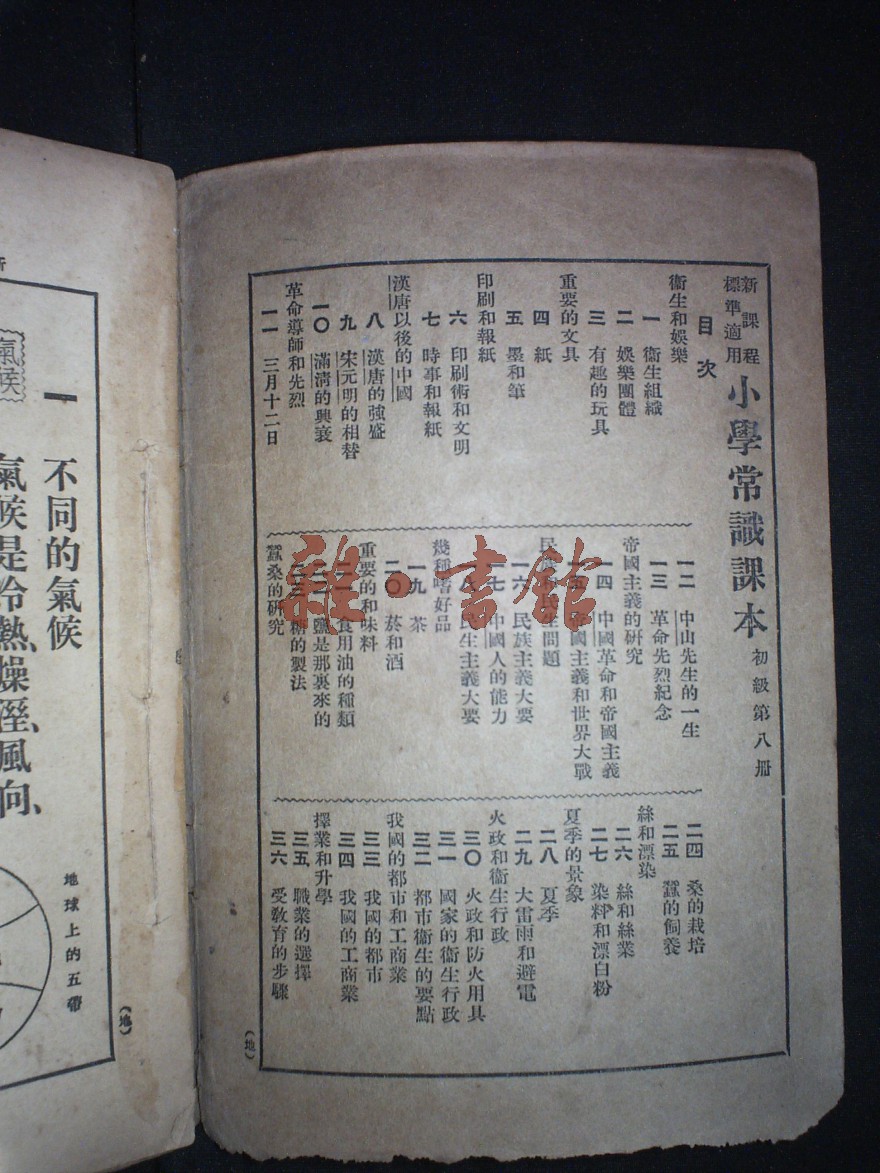 新課程
標準適用
小學常識課本
初級第八册
目次
衞生和娛樂
一 衞生組織
二 娛樂團體
三 有趣的玩具
重要的文具
四 紙
五 墨和筆
印刷和報紙
六 印刷術和文明
七 時事和報紙
漢唐以後的中國
八 漢唐的強盛
九 宋元明的相替
一〇 滿清的興衰
革命導師和先烈
一一 三月十二日
一二 中山先生的一生
一三 革命先烈紀念
帝國主義的研究
一四 中國革命和帝國主義
一五 帝國主義和世界大戰
民族和民生問題
一六 民族主義大要
一七 中國人的能力
一八 民生主義大要
幾種嗜好品
一九 茶
二〇 菸和酒
重要的和味料
二一 食用油的種類
二二 鹽是那裏來的
二三 糖的製法
蠶桑的研究
二四 桑的栽培
二五 蠶的飼養
絲和漂染
二六 絲和絲業
二七 染料和漂白粉
夏季的景象
二八 夏季
二九 大雷雨和避電
火政和衞生行政
三〇 火政和防火用具
三一 國家的衞生行政
三二 都市衞生的要點
我國的都市和工商業
三三 我國的都市
三四 我國的工商業
擇業和升學
三五 職業的選擇
三六 受教育的步驟
(地)
雜·書館
一 不同的氣候
氣候是冷熱、燥溼、風向、
氣候
地球上的五帶
(地)